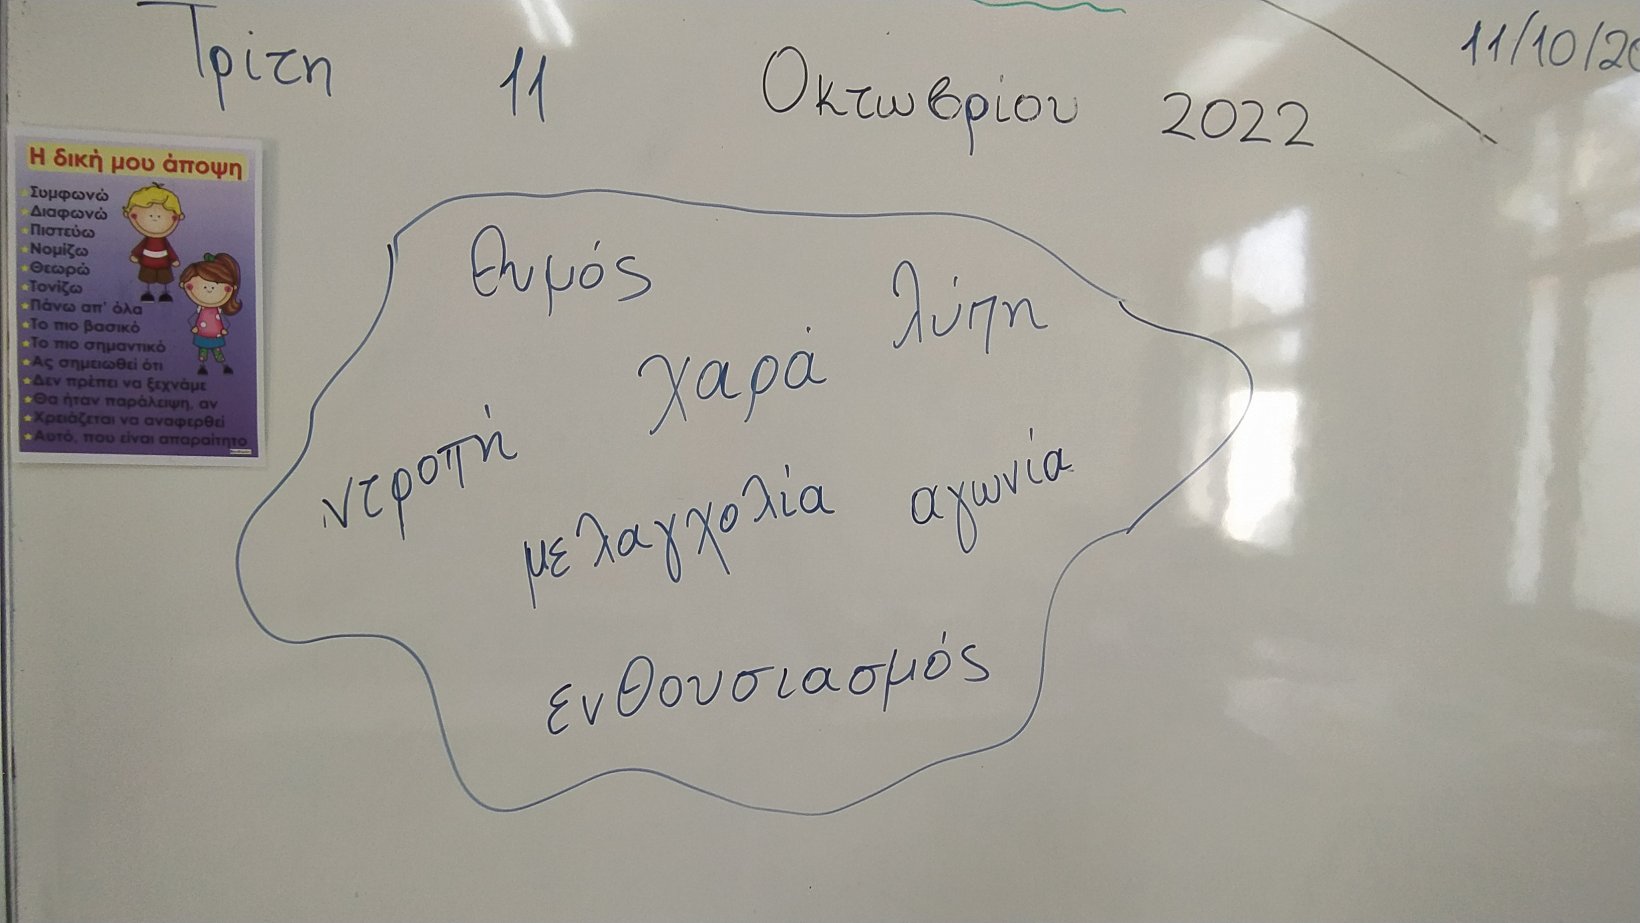 Τρίτη 11 Οκτωβρίου 2022
11/10/20
Η δική μου άποψη
Συμφωνώ
Διαφωνώ
Πιστεύω
Νομίζω
Θεωρώ
Τονίζω
Πάνω απ' όλα
Το πιο βασικό
Το πιο σημαντικό
Ας σημειωθεί ότι
Δεν πρέπει να ξεχνάμε
Θα ήταν παράλειψη, αν
Χρειάζεται να αναφερθεί
Αυτό, που είναι απαραίτητο
θυμός
λύπη
χαρά
ντροπή
μελαγχολία
αγωνία
ενθουσιασμός